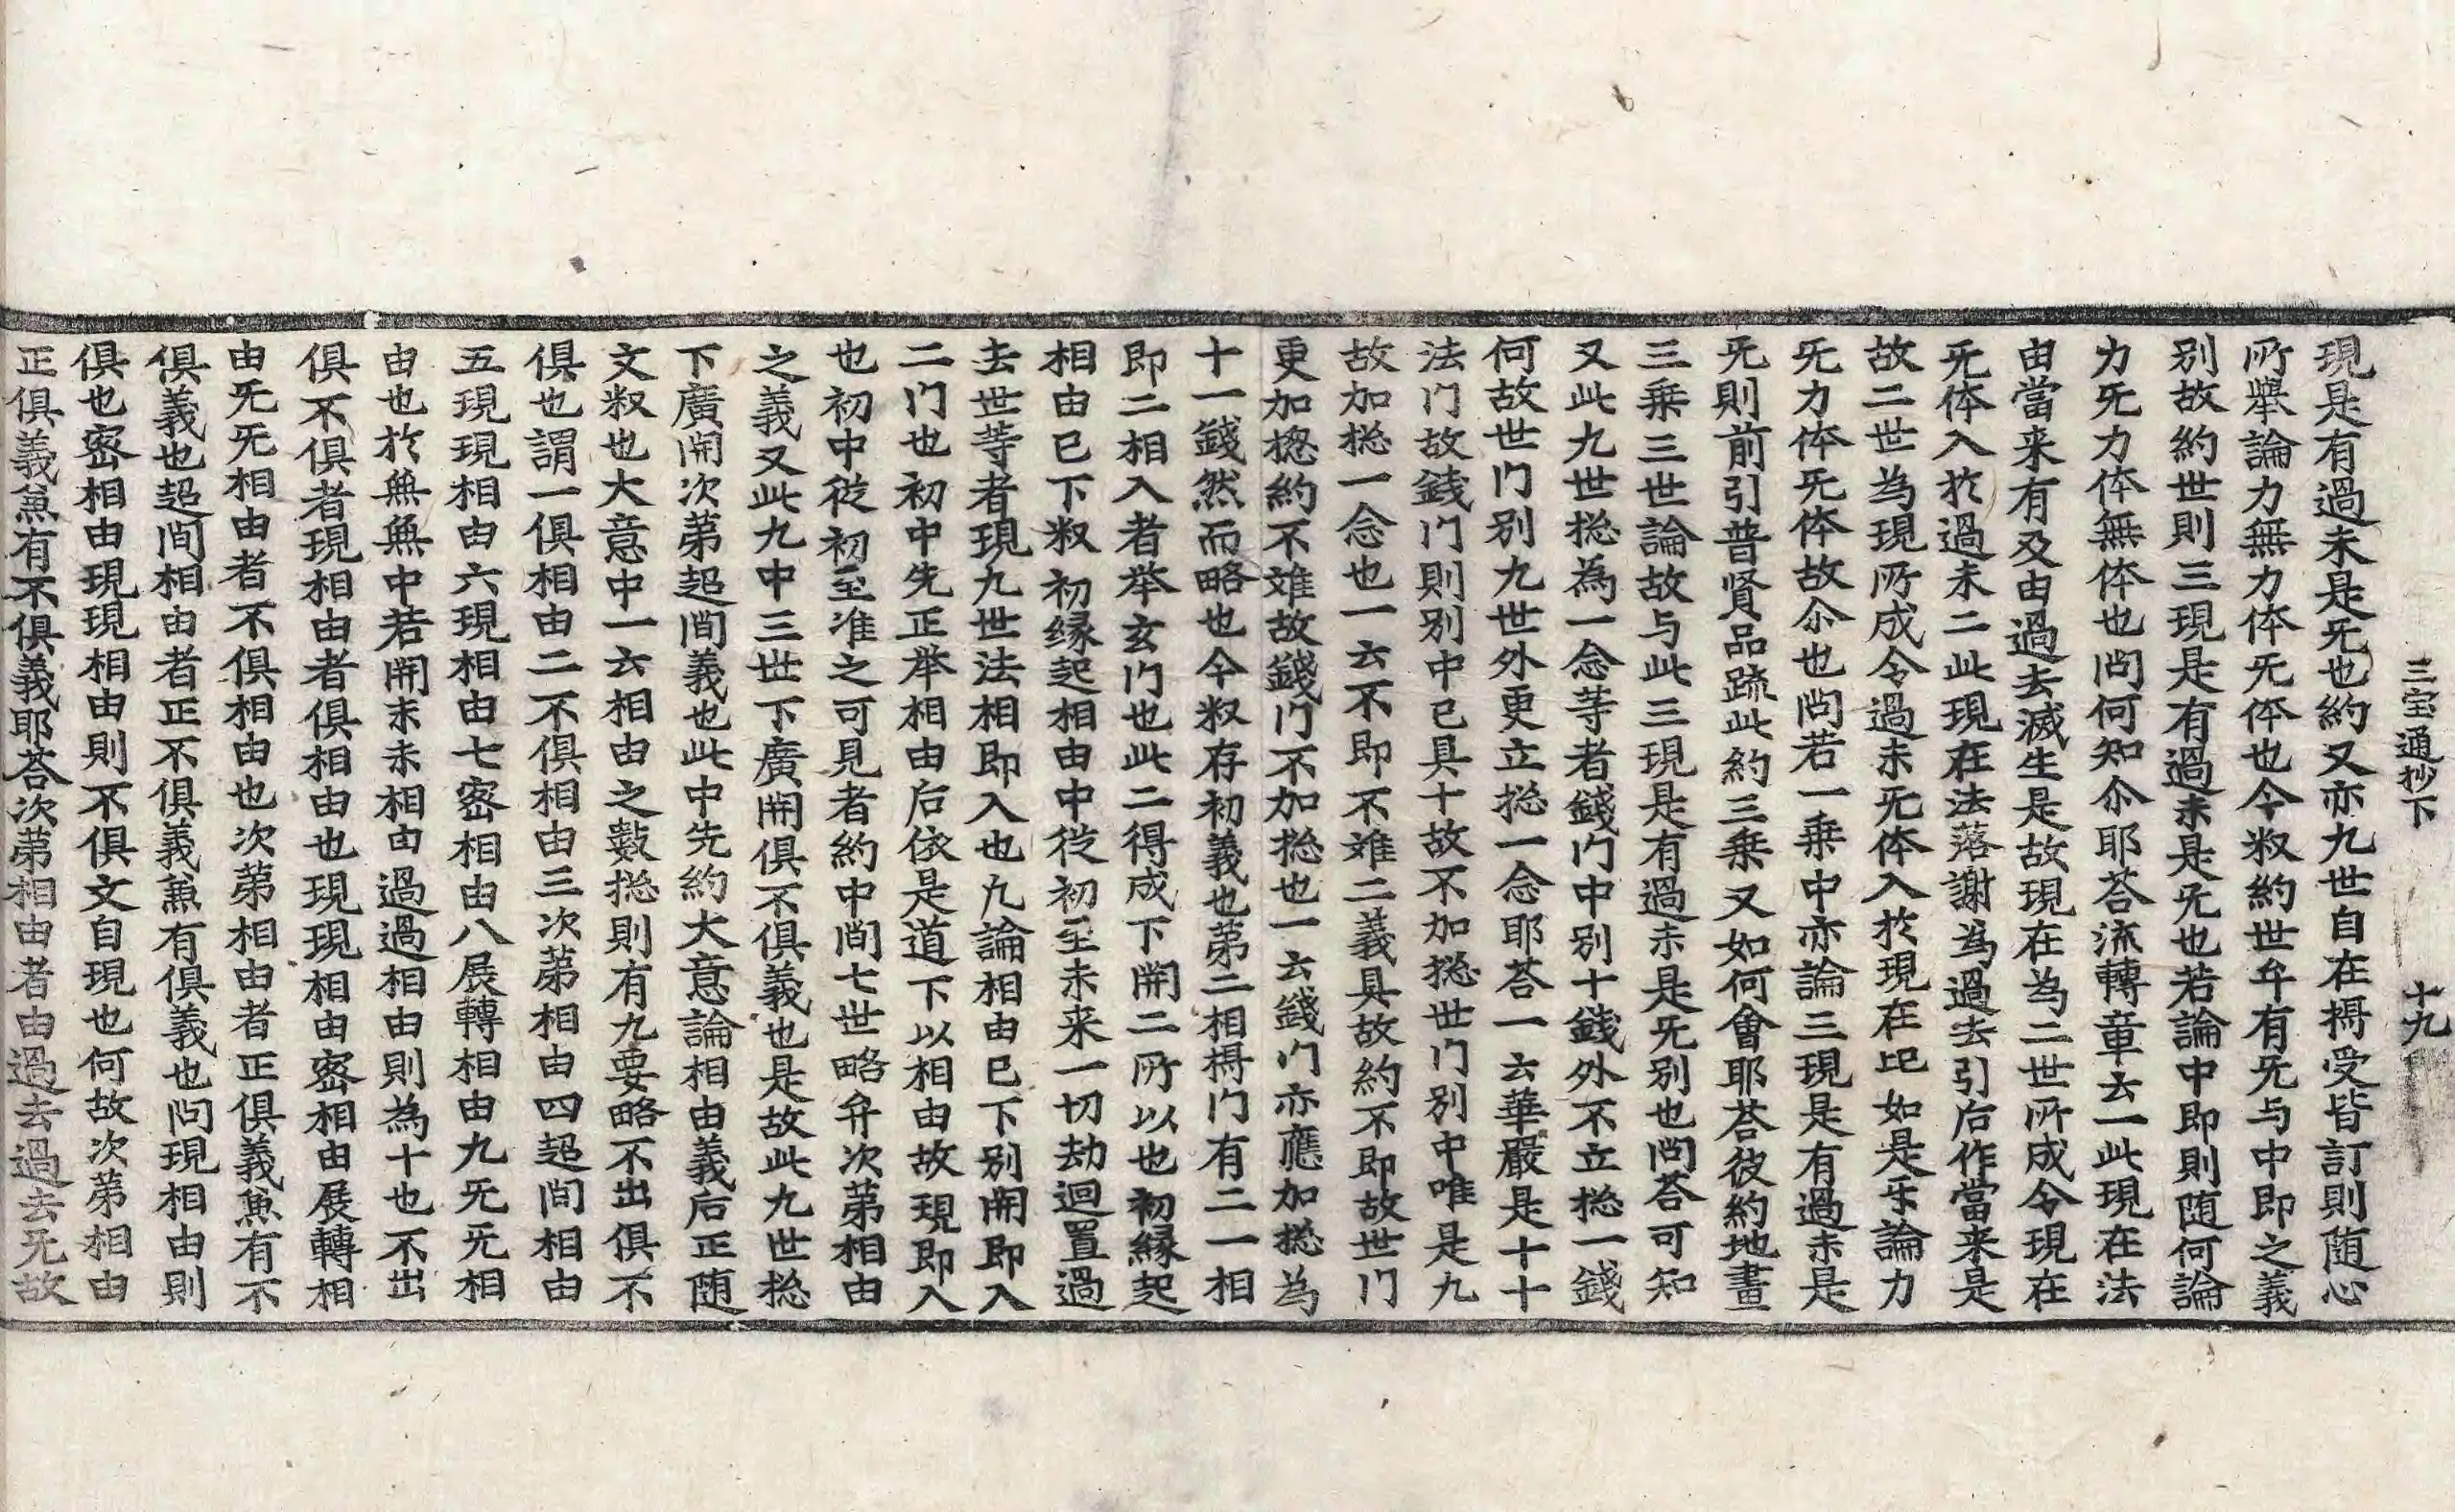 三宝通抄下　十九
現是有過未是无也約又亦九世自在㝵受皆訂則随心
所舉論力無力体无体也今叙約世牟有无与中即之義
别故約世則三現是有過未是无也若論中即則随何論
力无力体無体也問何知尒耶荅流轉章云一此現在法
由當来有及由過去滅生是故現在為二世所成令現在
无体入扵過未二此現在法落謝為過去引后作當来是
故二世為現所成令過未无体入扵現在上如是乐論力
无力体无体故尒也問若一乗中亦論三現是有過未是
无則前引普賢品䟽此約三乗又如何會耶荅彼約地畫
三乗三世論故与此三現是有過未是无别也問荅可知
又此九世捴為一念等者錢门中别十錢外不立捴一錢
何故世门别九世外更立捴一念耶荅一云華嚴是十十
法门故錢门則别中已具十故不加捴世门别中唯是九
故加捴一念也一云不即不雄二義具故約不即故世门
更加捴約不雄故錢门不加捴也一云錢门亦應加捴為
十一錢然而略也今叙存初義也第二相㝵门有二一相
即二相入者举玄门也此二得成下開二所以也初縁起
相由已下叙初縁起相由中從初至未来一切劫迴置過
去世䓁者現九世法相即入也九論相由已下别開即入
二门也初中先正举相由后依是道下以相由故現即入
也初中從初至准之可見者約中間七世略弁次第相由
之義又此九中三世下廣開俱不俱義也是故此九世捴
下廣開次第超間義也此中先約大意論相由義后正随
文叙也大意中一云相由之數捴則有九要略不出俱不
俱也謂一俱相由二不俱相由三次第相由四超間相由
五現現相由六現相由七密相由八展轉相由九无无相
由也扵無無中若開未未相由過過相由則為十也不出
俱不俱者現相由者俱相由也現現相由密相由展轉相
由无无相由者不俱相由也次第相由者正俱義兼有不
俱義也超間相由者正不俱義兼有俱義也問現相由則
俱也密相由現現相由則不俱文自現也何故次第相由
正俱義兼有不俱義耶荅次第相由者由過去過去无故